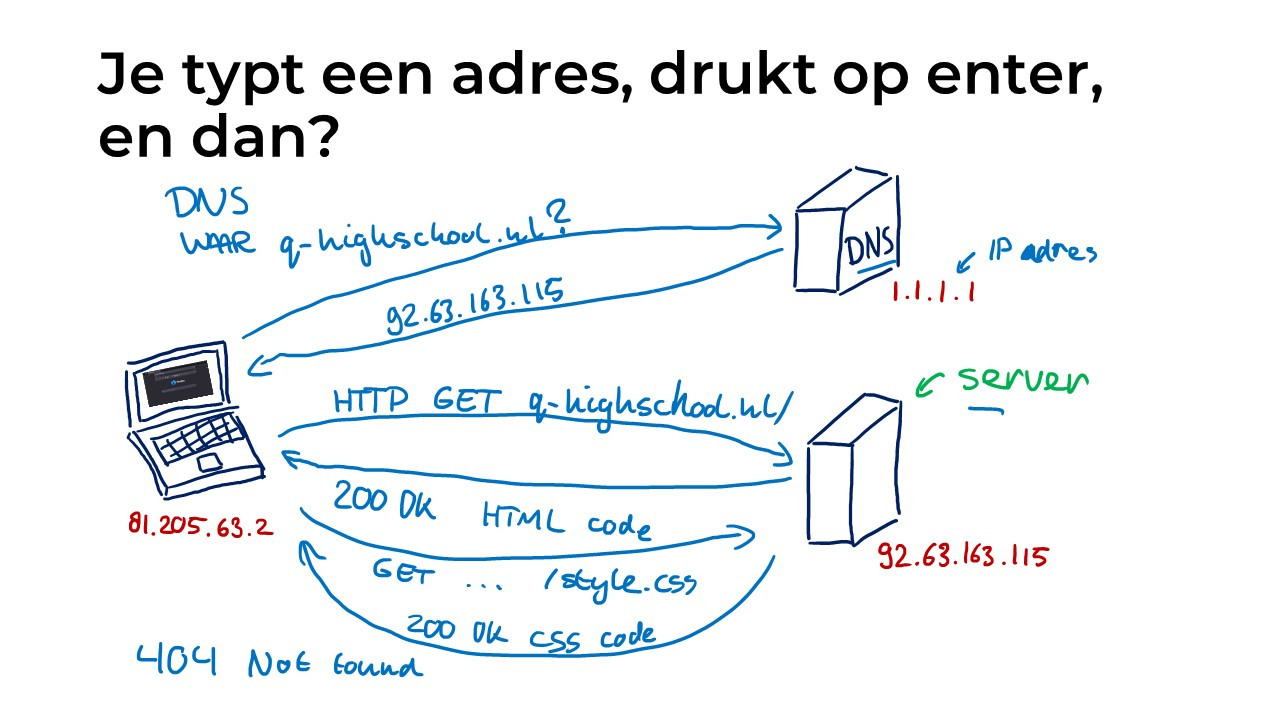 Je typt een adres, drukt op enter,
en dan?
DNS
WAAR q-highschool.nl?
DNS
IP adres
1.1.1.1
92.63.163.115
server
HTTP GET q-highschool.nl/
200 OK HTML code
81.205.63.2
92.63.163.115
GET ... /style.css
200 OK CSS code
404 Not found